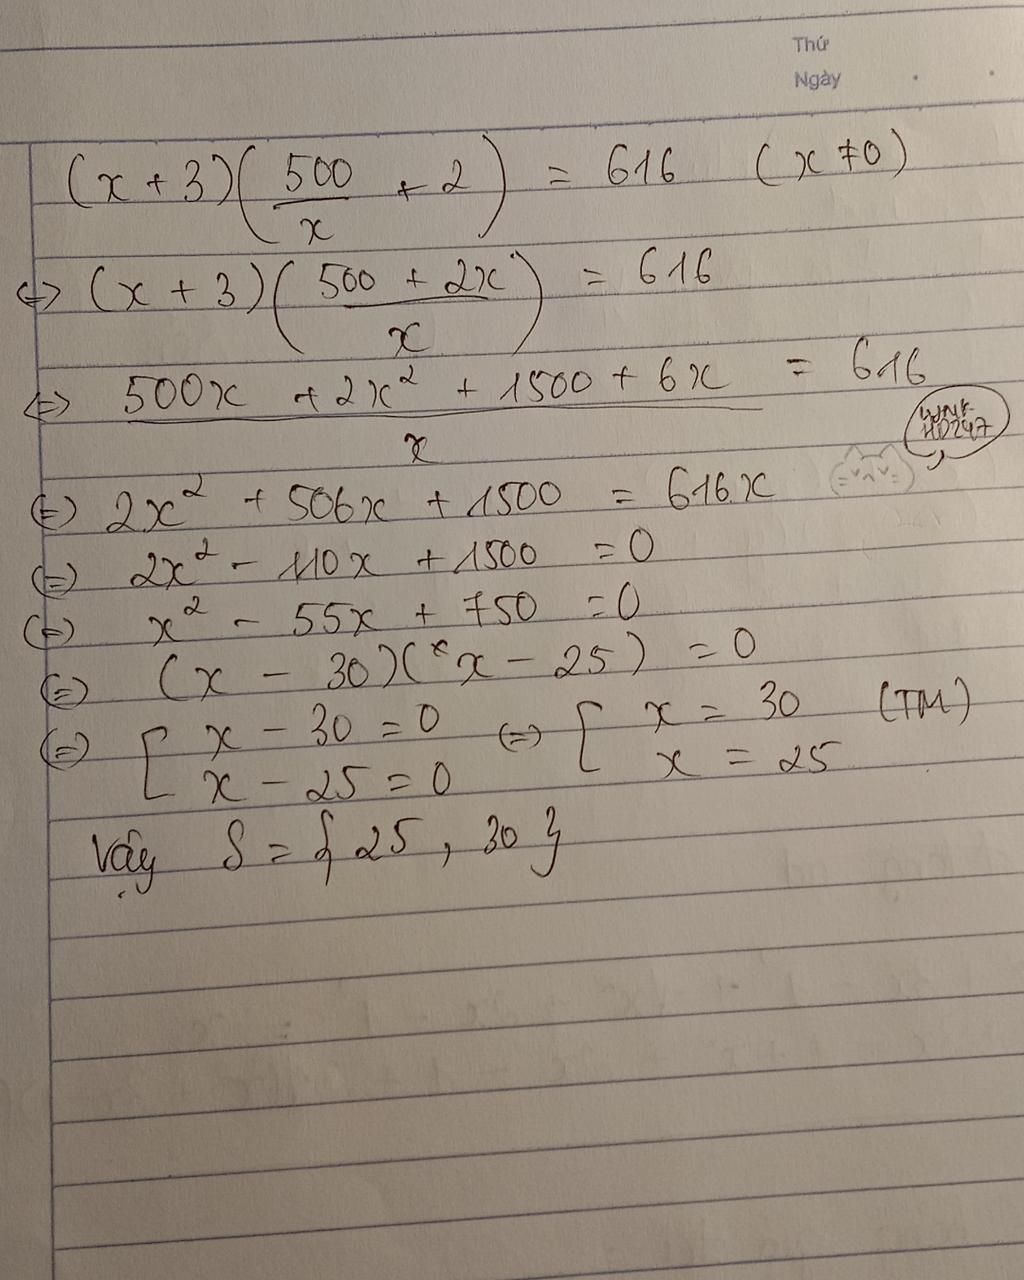 Thứ
Ngày
(x + 3)(500/x + 2) = 616 (x ≠ 0)
<=> (x + 3)((500 + 2x)/x) = 616
<=> (500x + 2x² + 1500 + 6x)/x = 616
<=> 2x² + 506x + 1500 = 616x
<=> 2x² - 110x + 1500 = 0
<=> x² - 55x + 750 = 0
<=> (x - 30)(x - 25) = 0
<=> [ x - 30 = 0 <=> [ x = 30 (TM)
x - 25 = 0 x = 25
Vậy S = { 25, 30 }